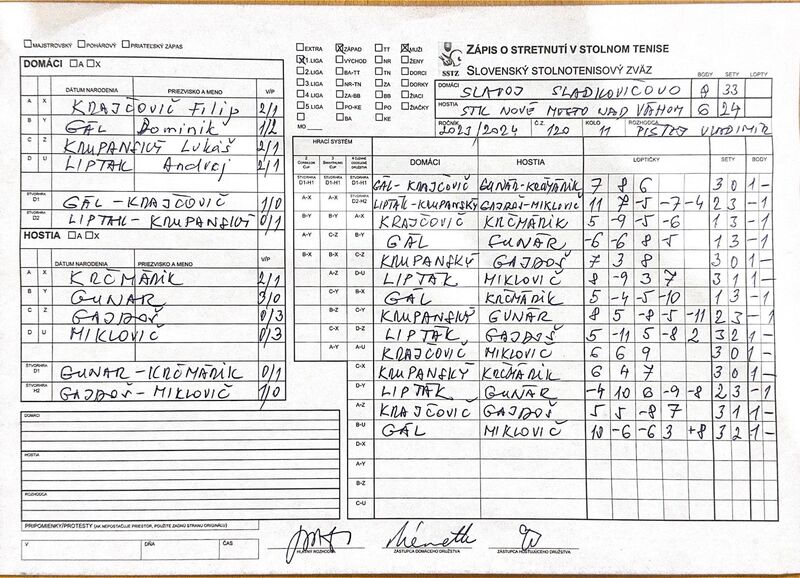 MAJSTROVSKÝ POHÁROVÝ PRIATEĽSKÝ ZÁPAS
EXTRA ZÁPAD TT MUŽI
1 LIGA VÝCHOD NR ŽENY
2 LIGA BA-TT TN DORCI
3 LIGA NR-TN ZA DORKY
4 LIGA ZA-BB BB ŽIACI
5 LIGA PO-KE PO ŽIAČKY
BA KE
MO
SSTZ
ZÁPIS O STRETNUTÍ V STOLNOM TENISE
SLOVENSKÝ STOLNOTENISOVÝ ZVÄZ
BODY SETY LOPTY
DOMÁCI SLAVOJ SLADKOVIČOVO 8 33
HOSTIA STK NOVÉ MESTO NAD VÁHOM 6 24
ROČNÍK 2023/2024 Č.Z. 120 KOLO 11 ROZHODCA VLADIMÍR
DOMÁCI A X
DÁTUM NARODENIA PRIEZVISKO A MENO V/P
A X KRAJČOVIČ Filip 2/1
B Y GÁL Dominik 1/2
C Z KRUPANSKÝ Lukáš 2/1
D U LIPTÁK Andrej 2/1
ŠTVORHRA D1 GÁL - KRAJČOVIČ 1/0
ŠTVORHRA D2 LIPTAK - KRUPANSKÝ 0/1
HOSTIA A X
DÁTUM NARODENIA PRIEZVISKO A MENO V/P
A X KRČMÁRIK 2/1
B Y GUNÁR 3/0
C Z GAJDOŠ 0/3
D U MIKLOVIČ 0/3
ŠTVORHRA D1 GUNAR - KRČMÁRIK 0/1
ŠTVORHRA H2 GAJDOŠ - MIKLOVIČ 1/0
HRACÍ SYSTÉM
DOMÁCI HOSTIA LOPTIČKY SETY BODY
D1-H1 D1-H1 D1-H1 GÁL-KRAJČOVIČ GUNÁR-KRČMÁRIK 7 8 6 3 0 1 -
A-X A-X D2-H2 LIPTAK-KRUPANSKÝ GAJDOŠ-MIKLOVIČ 11 7 -5 -7 -4 2 3 - 1
B-Y B-Y A-X KRAJČOVIČ KRČMÁRIK 5 -9 -5 -6 1 3 - 1
A-Y C-Z B-Y GÁL GUNÁR -6 -6 8 -5 1 3 - 1
B-X B-X C-Z KRUPANSKÝ GAJDOŠ 7 3 8 3 0 1 -
A-Z D-U LIPTÁK MIKLOVIČ 8 -9 3 7 3 1 1 -
C-Y B-X GÁL KRČMÁRIK 5 -4 -5 -10 1 3 - 1
B-Z C-Y KRUPANSKÝ GUNÁR 8 5 -8 -5 -11 2 3 - 1
C-X D-Z LIPTÁK GAJDOŠ 5 -11 5 -8 2 3 2 1 -
A-Y A-U KRAJČOVIČ MIKLOVIČ 6 6 9 3 0 1 -
C-X KRUPANSKÝ KRČMÁRIK 6 4 7 3 0 1 -
D-Y LIPTÁK GUNÁR -4 10 6 -9 -8 2 3 - 1
A-Z KRAJČOVIČ GAJDOŠ 5 5 -8 7 3 1 1 -
B-U GÁL MIKLOVIČ 10 -6 -6 3 +8 3 2 1 -
D-X
A-Y
B-Z
C-U
DOMÁCI
HOSTIA
ROZHODCA
PRIPOMIENKY/PROTESTY (AK NEPOSTAČUJE PRIESTOR, POUŽITE ZADNÚ STRANU ORIGINÁLU)
V DŇA ČAS
HLAVNÝ ROZHODCA ZÁSTUPCA DOMÁCEHO DRUŽSTVA ZÁSTUPCA HOSŤUJÚCEHO DRUŽSTVA